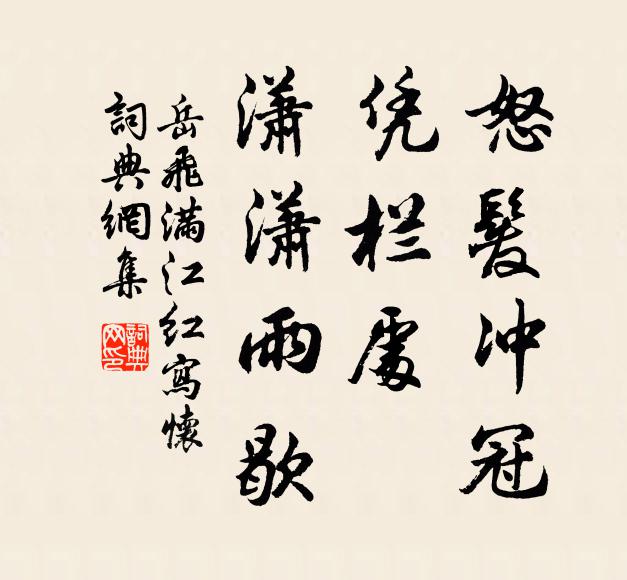 怒髮冲冠
凭栏處
瀟瀟雨歇
岳飛滿江红寫懷
詞典網集
詞典网印